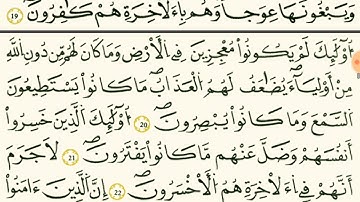 وَيَبْغُونَهَا عِوَجاً وَهُم بِاءَلَاخِرَةِ هُمْ كَٰفِرُونَ 19
أُوْلَٰٓئِكَ لَمْ يَكُونُواْ مُعْجِزِينَ فِے اِ۬لْأَرْضِ وَمَا كَانَ لَهُم مِّن دُونِ اِ۬للَّهِ
مِنْ أَوْلِيَآءَ يُضَٰعَفُ لَهُمُ اُ۬لْعَذَابُ مَا كَانُواْ يَسْتَطِيعُونَ
اَ۬لسَّمْعَ وَمَا كَانُواْ يُبْصِرُونَ 20 أُوْلَٰٓئِكَ اَ۬لَّذِينَ خَسِرُواْ
أَنفُسَهُمْ وَضَلَّ عَنْهُم مَّا كَانُواْ يَفْتَرُونَ 21 لَا جَرَمَ
أَنَّهُمْ فِے اِ۬ءَلَاخِرَةِ هُمُ اُ۬لْأَخْسَرُونَ 22 إِنَّ اَ۬لَّذِينَ ءَامَنُواْ